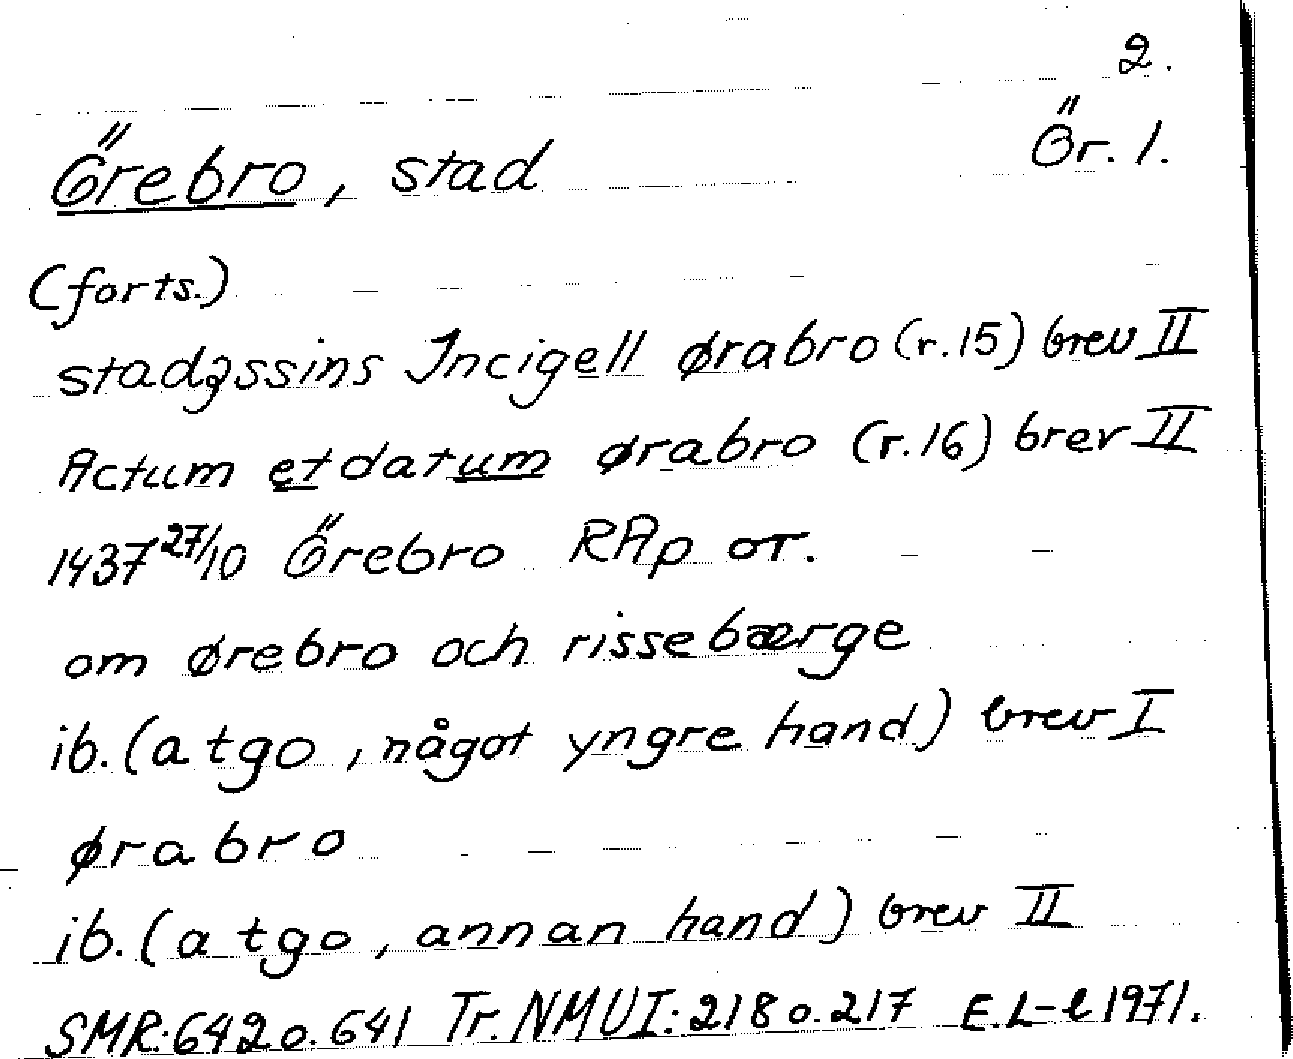 2.
Örebro, stad Ör. 1.
(forts.)
stadzssins Incigell ørabro (r.15) brev II
Actum et datum ørabro (r.16) brev II
1437 27/10 Örebro RAp or.
om ørebro och rissebærge
ib. (a tgo, något yngre hand) brev I
ørabro
ib. (a tgo, annan hand) brev II
SMR:642 o. 641 Tr. NMU I: 218 o. 217 E. L-l 1971.